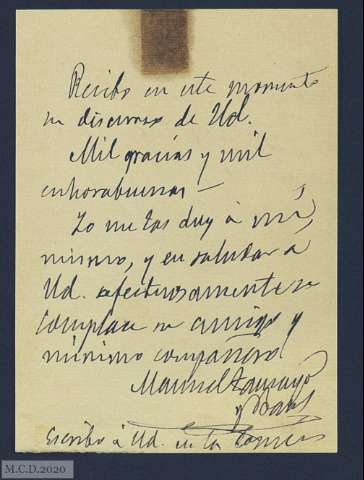 Recibo en este momento
su discurso de Ud.
Mil gracias y mil
enhorabuenas —
Yo me las doy á mí
mismo, y en saludar a
Ud. afectuosamente se
complace su amigo y
mínimo compañero
Manuel Tamayo
y Baus
Escribo á Ud. en la
M.C.D.2020